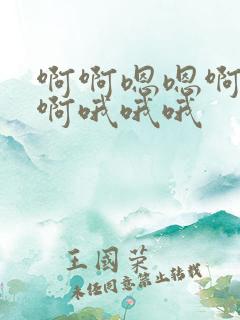 啊啊嗯嗯啊
啊哦哦哦
王国荣
未经同意禁止转载